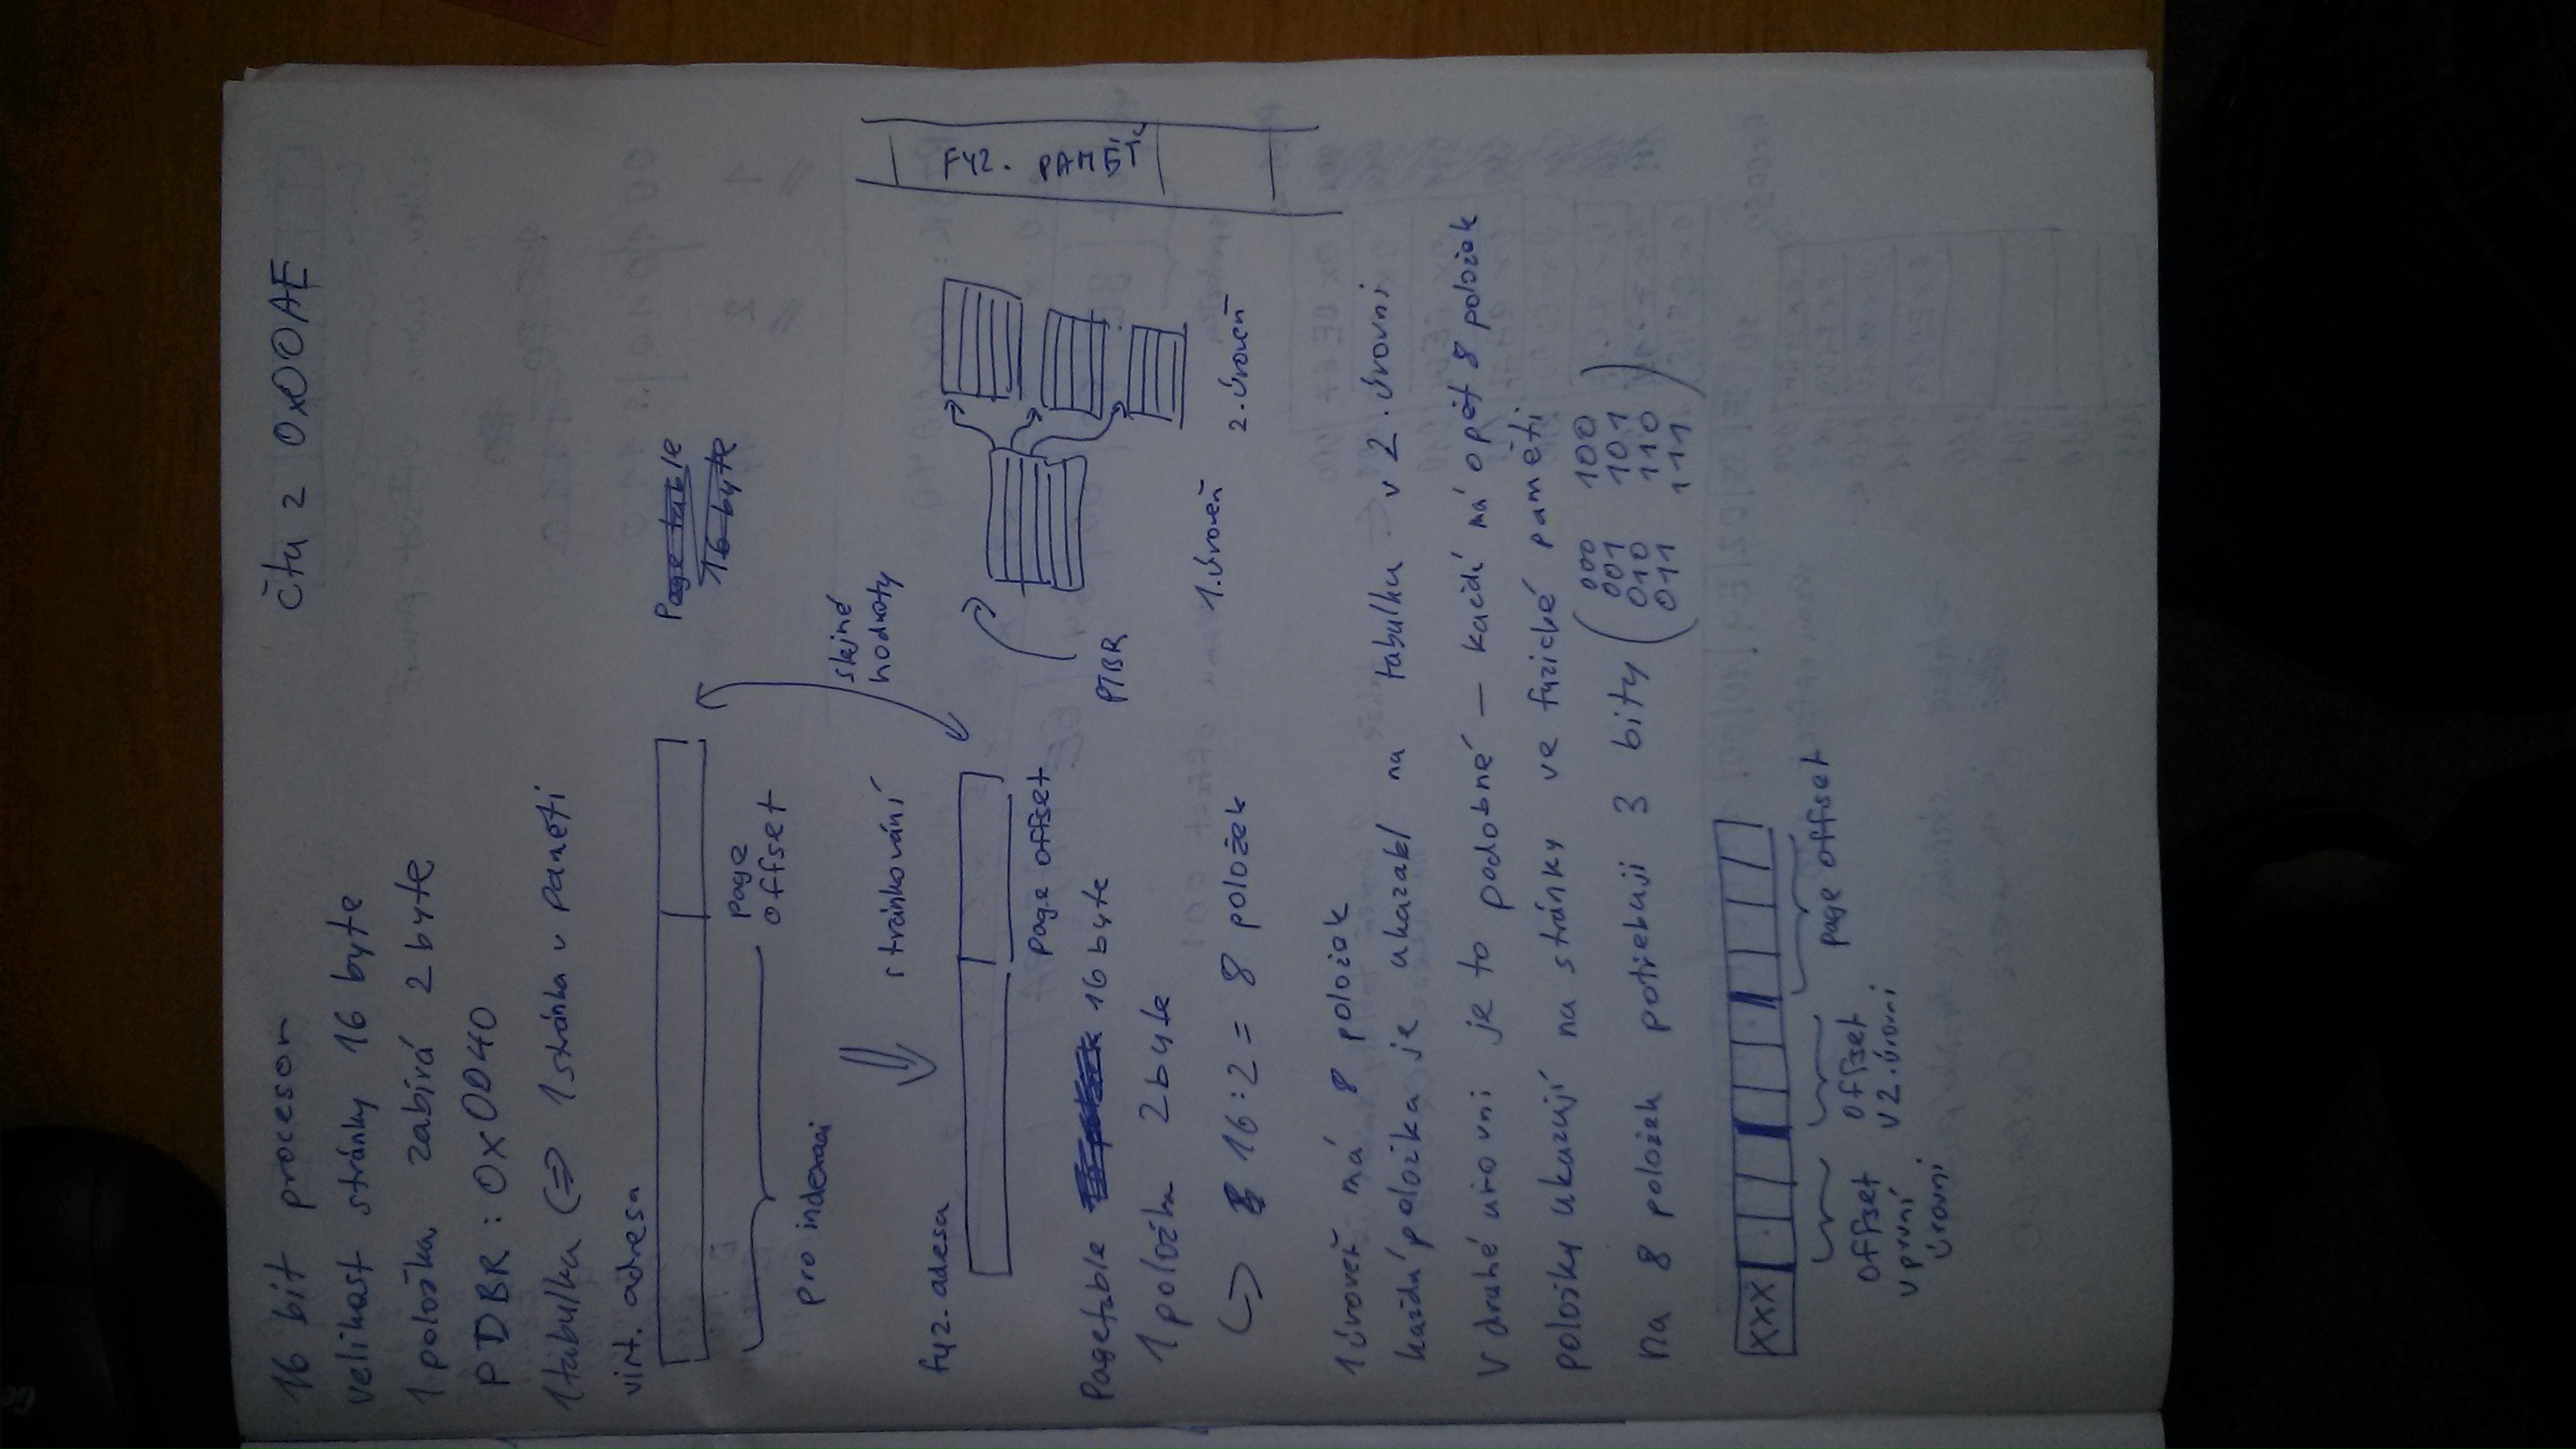 16 bit procesor
čtu z 0x00AE
velikost stránky 16 byte
1 položka zabírá 2 byte
PDBR: 0x0D40
1 tabulka <=> 1 stránka v paměti
virt. adresa
Page table
16 byte
page
offset
pro indexaci
stejné
hodnoty
stránkování
fyz. adesa
page offset
PTBR
1. úroveň
2. úroveň
FYZ. PAMĚŤ
Pagetable 16 byte
1 položka 2 byte
↳ 16:2 = 8 položek
1 úroveň má 8 položek
každá položka je ukazatel na tabulku v 2. úrovni
V druhé úrovni je to podobné – každá má opět 8 položek
položky ukazují na stránky ve fyzické paměti
na 8 položek potřebuji 3 bity (
000 100
001 101
010 110
011 111
)
XXX
offset
v první
úrovni
offset
v 2. úrovni
page offset